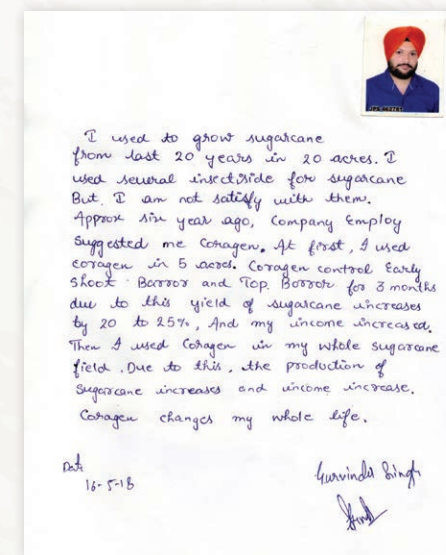 I used to grow sugarcane
from last 20 years in 20 acres. I
used several insectiside for sugarcane
But, I am not satisfy with them.
Approx six year ago, Company Employ
Suggested me Coragen. At first, I used
coragen in 5 acres. Coragen control Early
Shoot Barror and Top Borror for 3 months
due to this yield of sugarcane increases
by 20 to 25%, And my income increased.
Then I used Coragen in my whole sugarcane
field. Due to this, the production of
Sugarcane increases and income increase.
Coragen changes my whole life.
Date
16-5-18
Gurvinder Singh